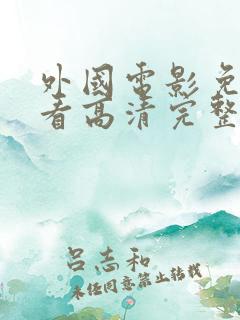 外國電影免
看高清完整
呂志和
未经同意禁止转载